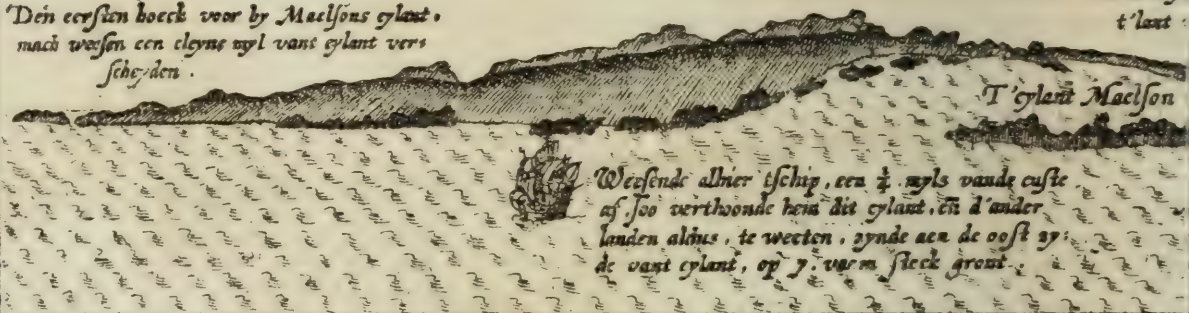 Den eersten hoeck voor by Maelsons eylant.
mach weesen een cleyne myl vant eylant ver-
scheyden.
t'lant
T'eylant Maelson
Weesende alhier tschip, een ¼ myls vande custe
af, soo verthoonde hem dit eylant, en̄ d'ander
landen aldus, te weeten, zynde aen de oost zy-
de vant eylant, op 7. vaem steck gront.